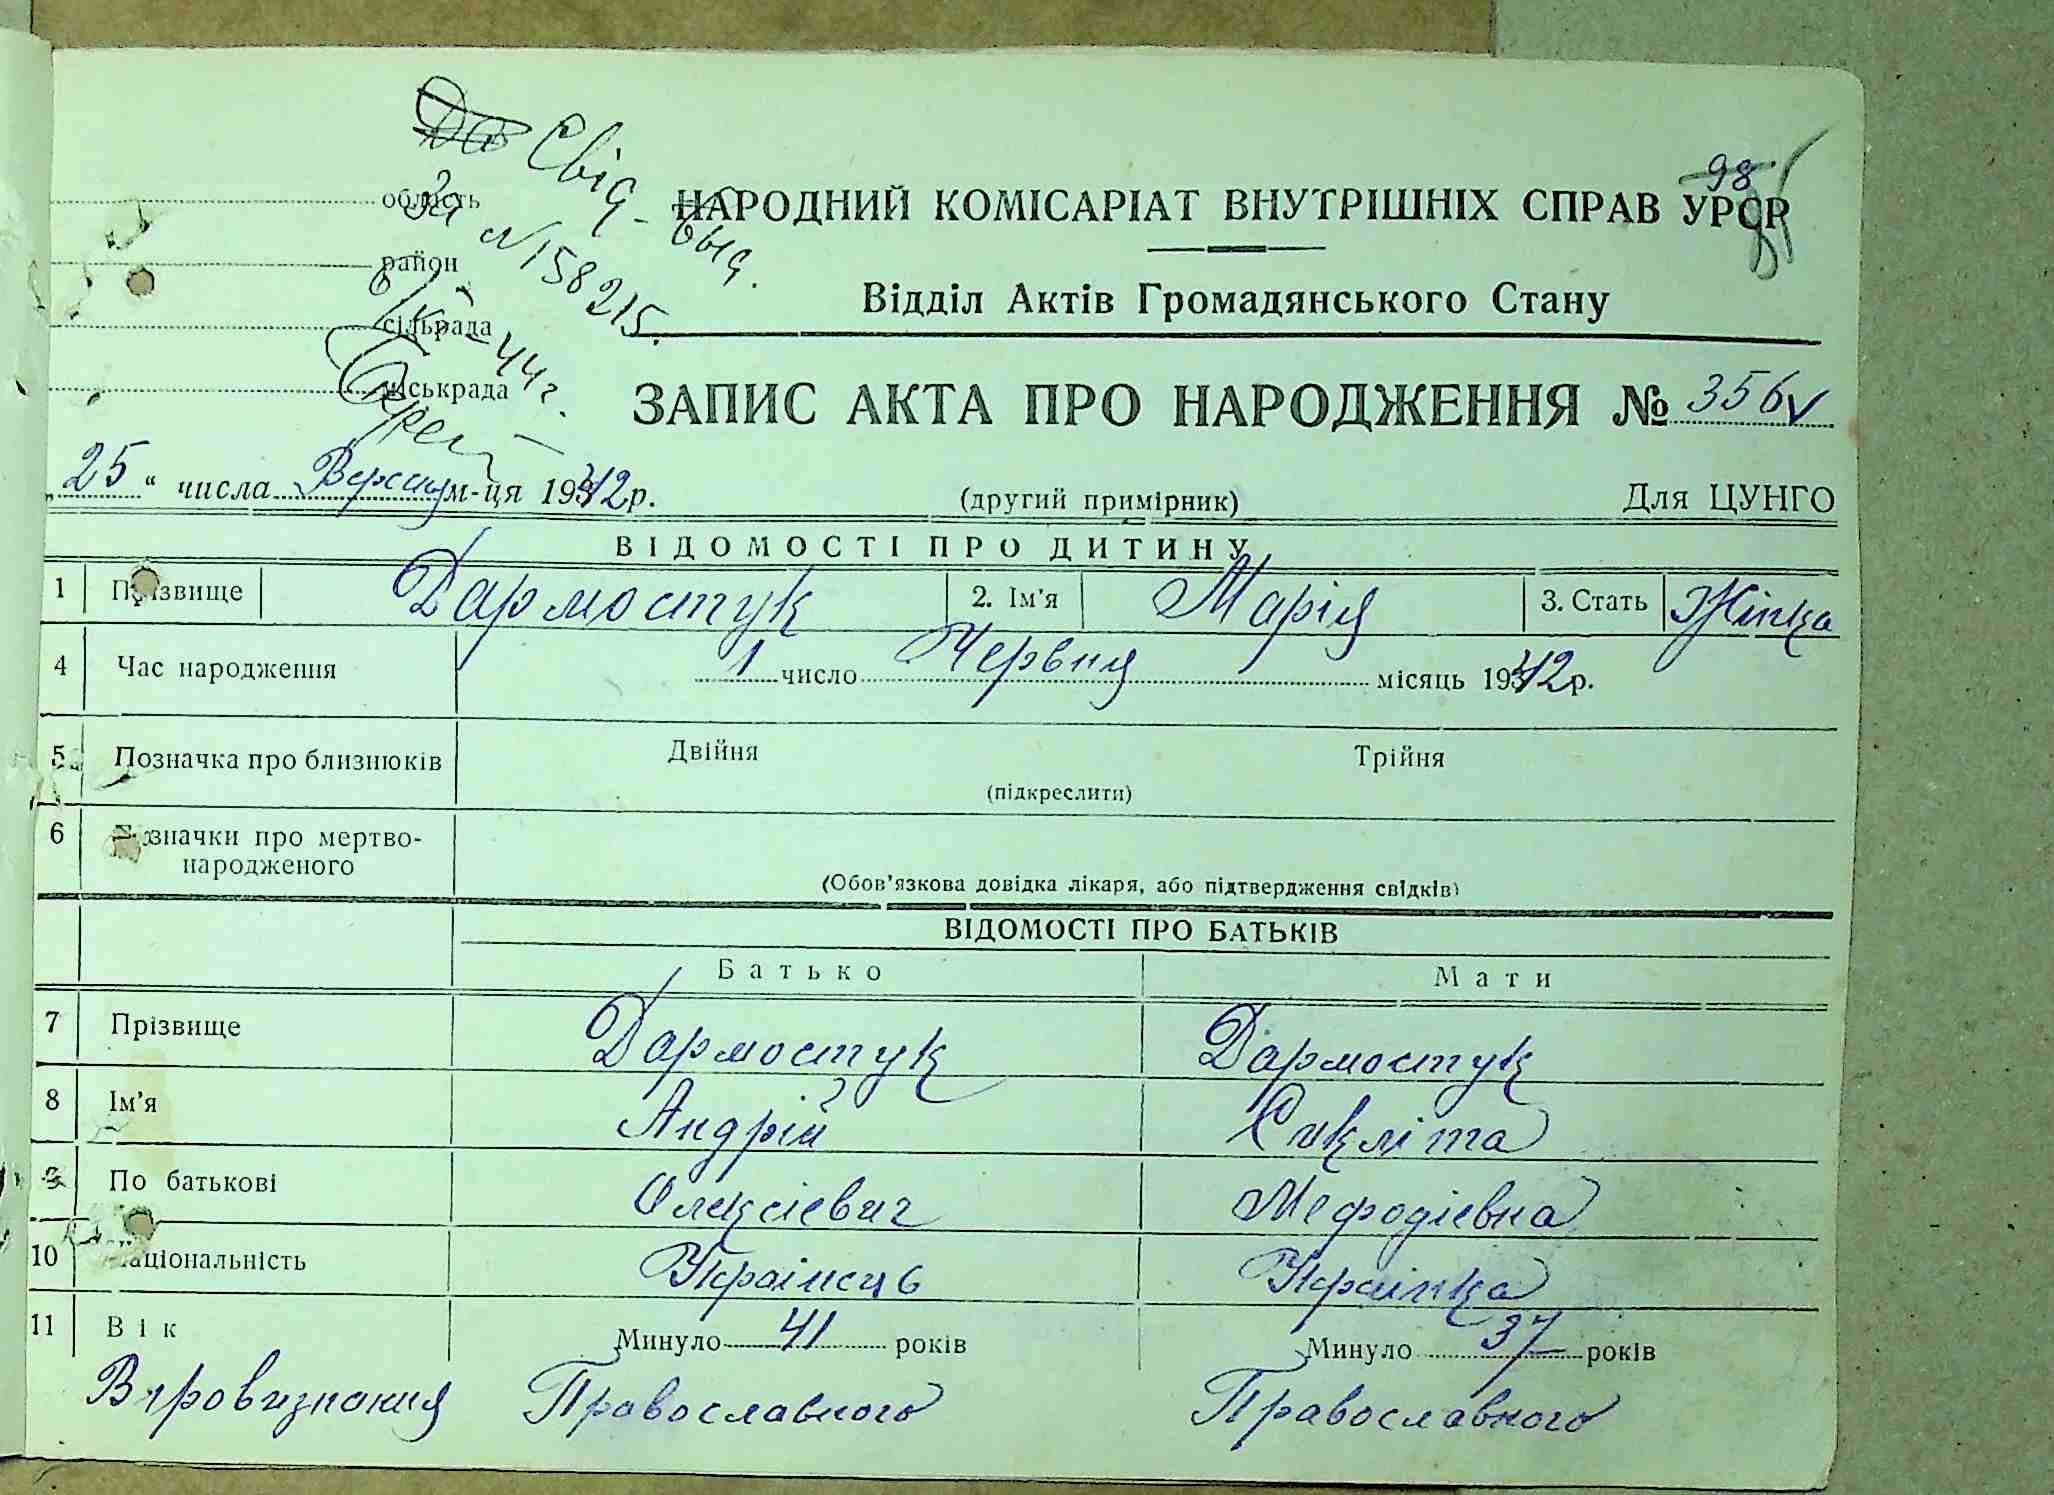 98
Свід- выд.
за N 158215.
область
район
сільрада
міськрада
НАРОДНИЙ КОМІСАРІАТ ВНУТРІШНІХ СПРАВ УРСР
Відділ Актів Громадянського Стану
ЗАПИС АКТА ПРО НАРОДЖЕННЯ № 356
„25“ числа м-ця 1942р. (другий примірник) Для ЦУНГО
ВІДОМОСТІ ПРО ДИТИНУ
1 Прізвище Дармостук 2. Ім'я Марія 3. Стать Жінка
4 Час народження 1 число Червня місяць 1942р.
5 Позначка про близнюків Двійня Трійня
(підкреслити)
6 Позначки про мертво-
народженого
(Обов'язкова довідка лікаря, або підтвердження свідків)
ВІДОМОСТІ ПРО БАТЬКІВ
Батько Мати
7 Прізвище Дармостук Дармостук
8 Ім'я Андрій
9 По батькові Олексієвич Мефодієвна
10 Національність Українець Українка
11 Вік Минуло 41 років Минуло 37 років
Віровизнання Православного Православного